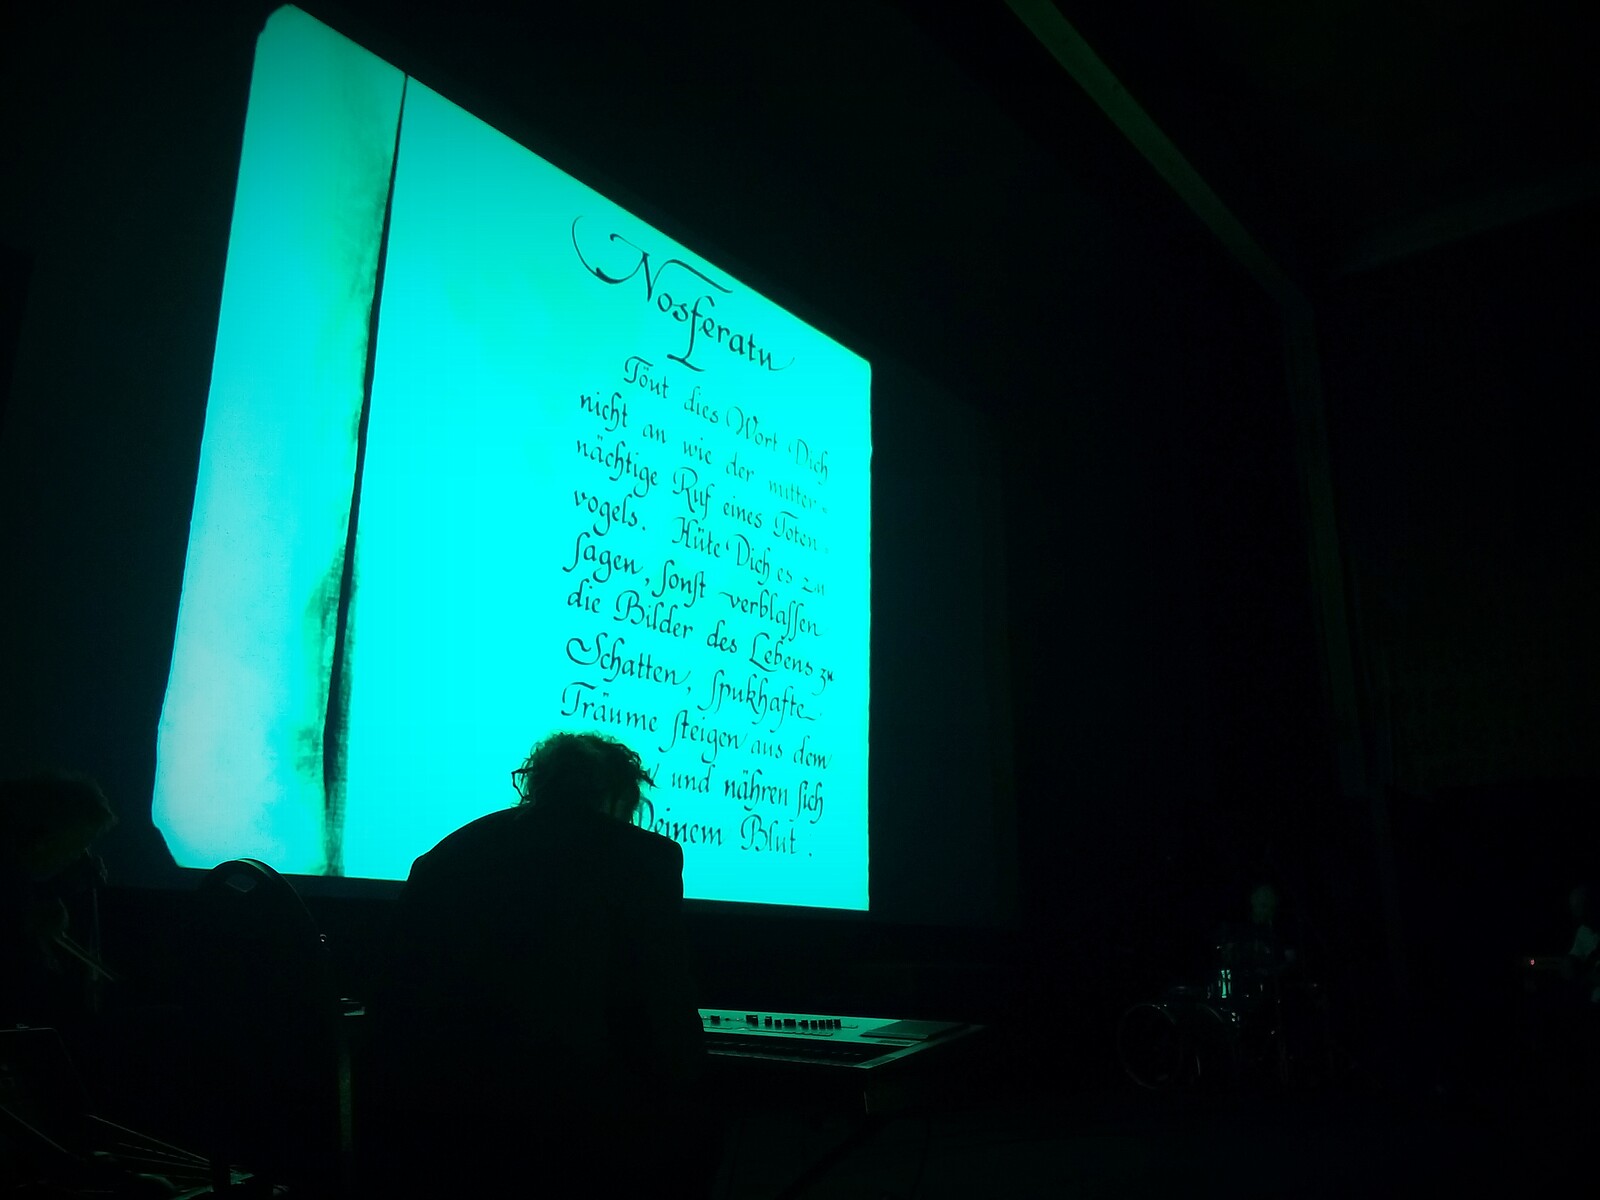 Nosferatu
Tönt dies Wort Dich
nicht an wie der mitter-
nächtige Ruf eines Toten-
vogels. Hüte Dich es zu
sagen, sonst verblassen
die Bilder des Lebens zu
Schatten, spukhafte
Träume steigen aus dem
und nähren sich
Deinem Blut.